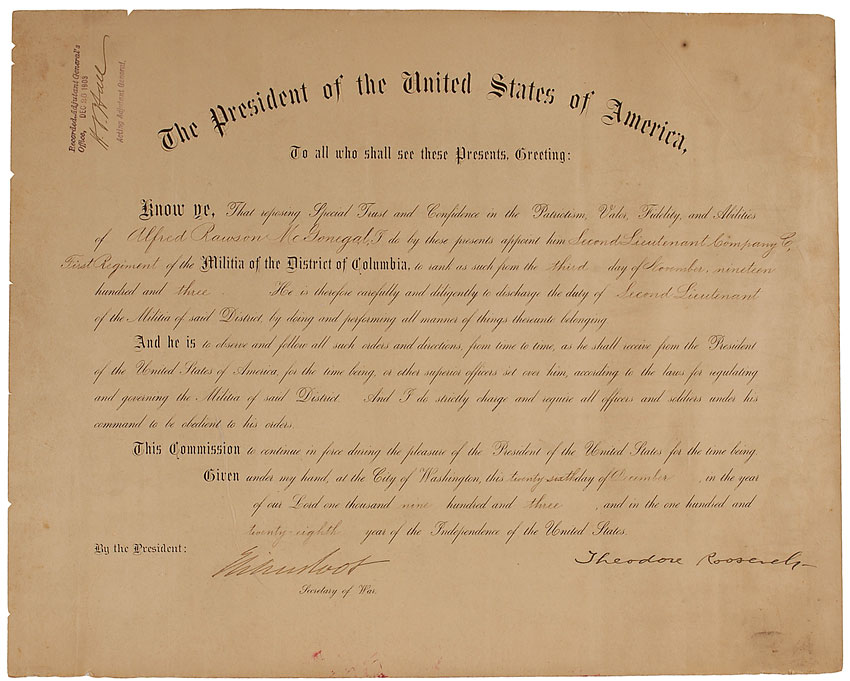 Recorded, Adjutant General's
Office, DEC 30 1903
Acting Adjutant General.
The President of the United States of America,
To all who shall see these Presents, Greeting:
Know ye, That reposing Special Trust and Confidence in the Patriotism, Valor, Fidelity, and Abilities
of Alfred Rawson McGonegal, I do by these presents appoint him Second Lieutenant Company
First Regiment of the Militia of the District of Columbia, to rank as such from the third day of November, nineteen
hundred and three. He is therefore carefully and diligently to discharge the duty of Second Lieutenant
of the Militia of said District, by doing and performing all manner of things thereunto belonging.
And he is to observe and follow all such orders and directions, from time to time, as he shall receive from the President
of the United States of America, for the time being, or other superior officers set over him, according to the laws for regulating
and governing the Militia of said District. And I do strictly charge and require all officers and soldiers under his
command to be obedient to his orders.
This Commission to continue in force during the pleasure of the President of the United States for the time being.
Given under my hand, at the City of Washington, this twenty sixth day of December, in the year
of our Lord one thousand nine hundred and three, and in the one hundred and
twenty-eighth year of the Independence of the United States.
By the President:
Elihu Root
Theodore Roosevelt
Secretary of War.